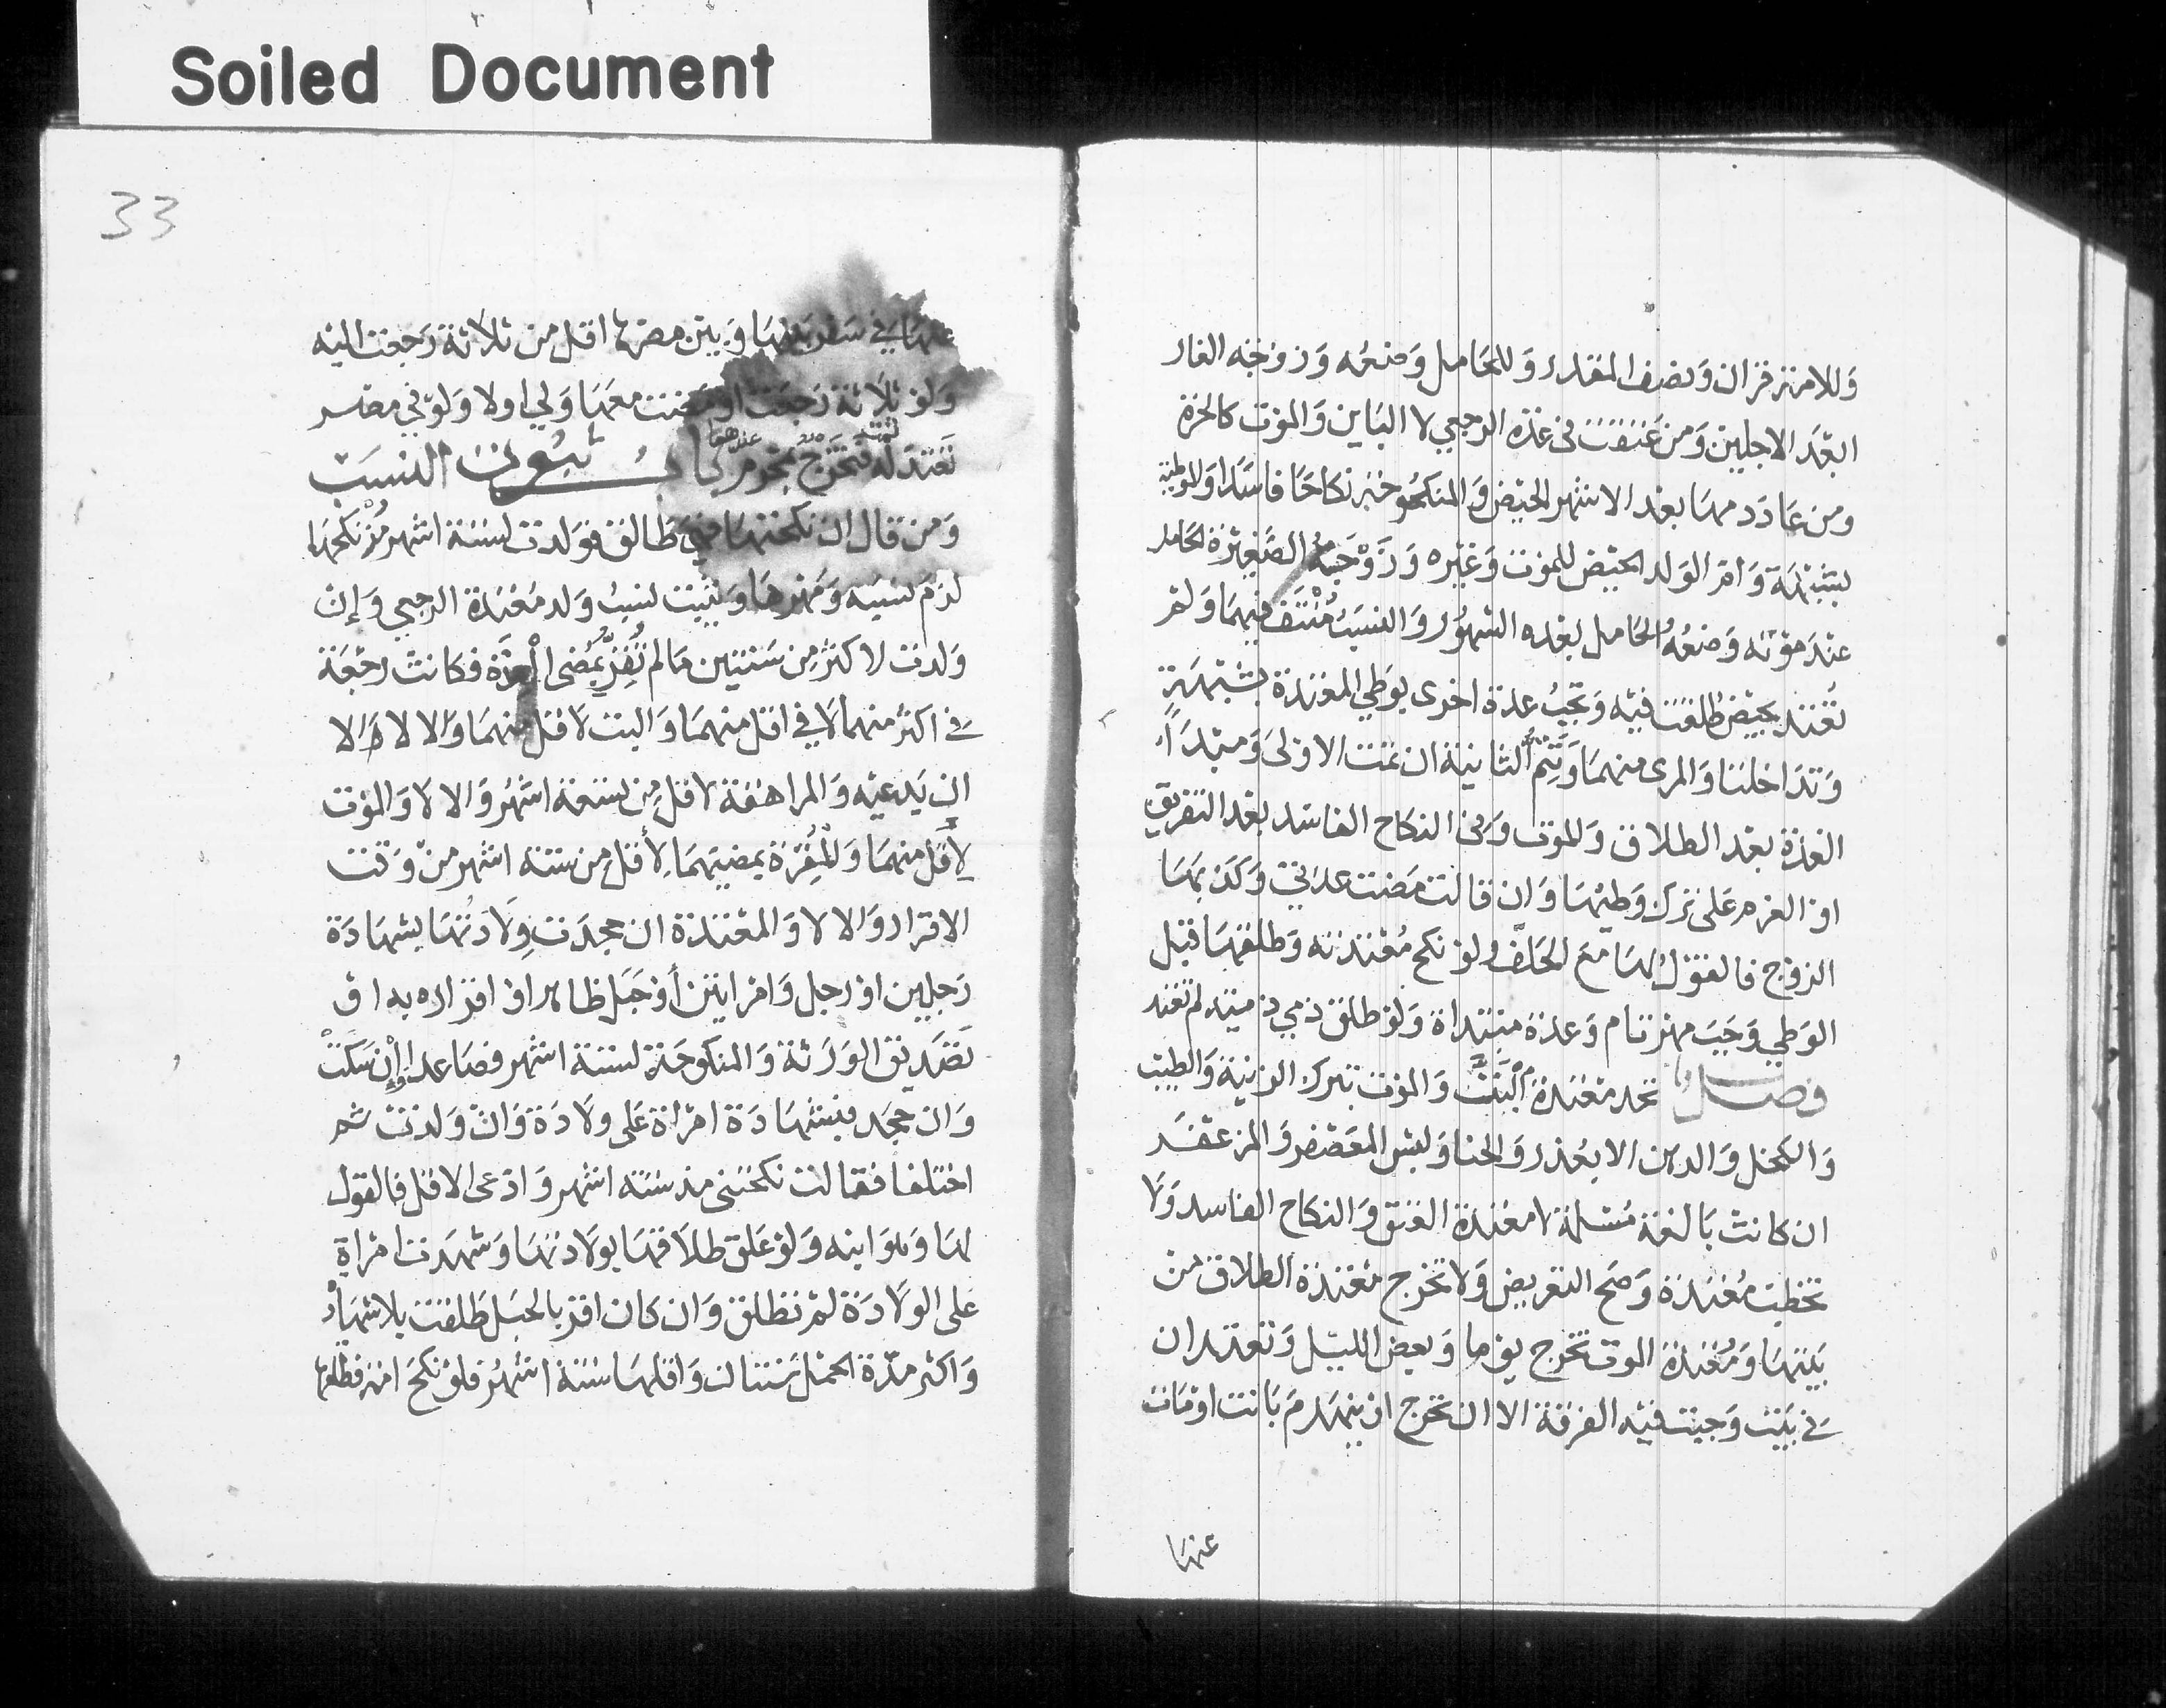 Soiled Document
وللامة قران ونصف المقدر وللحامل وضعه وزوجة الفار
ابعد الاجلين ومن عتقت فى عدة الرجعي لا الباين والموت كالحرة
ومن عاد دمها بعد الاشهر الحيض والمنكوحة نكاحا فاسدا والموطوءة
بشبهة وام الولد الحيض للموت وغيره وزوجة الصغيرة الحامل
عند موته وضعه والحامل بعده الشهور والنسب منتف فيهما ولم
تعتد بحيض طلقت فيه وتجب عدة اخرى بوطي المعتدة بشبهة
وتداخلتا والمرى منهما وتتم الثانية ان تمت الاولى ومبتدأ
العدة بعد الطلاق والموت وفى النكاح الفاسد بعد التفريق
او العزم على ترك وطيها وان قالت مضت عدتي وكذبها
الزوج فالقول لها مع الحلف ولو نكح معتدته وطلقها قبل
الوطي وجب مهر تام وعدة مبتداة ولو طلق ذمي ذمية لم تعتد
فصل تحد معتدة البت والموت بترك الزينة والطيب
والكحل والدهن الا بعذر والحنا ولبس المعصفر والمزعفر
ان كانت بالغة مسلمة لا معتدة العتق والنكاح الفاسد ولا
تخطب معتدة وصح التعريض ولا تخرج معتدة الطلاق من
بيتها ومعتدة الموت تخرج يوما وبعض الليل وتعتدان
في بيت وجبت فيه الفرقة الا ان تخرج او ينهدم بانت او مات
عنها
33
عنها في سفر بينها وبين مصرها اقل من ثلاثة رجعت اليه
ولو ثلاثة رجعت او مضت معها ولي اولا ولو في مصر
تعتد ثمه فتخرج بمحرم باب ثبوت النسب
ومن قال ان نكحتها فهي طالق فولدت لستة اشهر مذ نكحها
لزم نسبه ومهرها ويثبت نسب ولد معتدة الرجعي وإن
ولدت لاكثر من سنتين مالم تقر بمضى العدة فكانت رجعة
في اكثر منهما لا في اقل منهما والبت لاقل منهما والا لا الا
ان يدعيه والمراهقة لاقل من تسعة اشهر والا لا والموت
لأقل منهما والمقرة بمضيها لأقل من ستة اشهر من وقت
الاقرار والا لا والمعتدة ان جحدت ولادتها بشهادة
رجلين او رجل وامراتين أو حبل ظاهر او اقراره به او
تصديق الورثة والمنكوحة لستة اشهر فصاعدا وإن سكت
وان جحد فبشهادة امراة على ولادة وان ولدت ثم
اختلفا فقالت نكحتنى مذ ستة اشهر وادعى الاقل فالقول
لها وهو ابنه ولو علق طلاقها بولادتها وشهدت امراة
على الولادة لم تطلق وان كان اقر بالحبل طلقت بلا شهاد
واكثر مدة الحمل سنتان واقلها ستة اشهر فلو نكح امة فطلقها